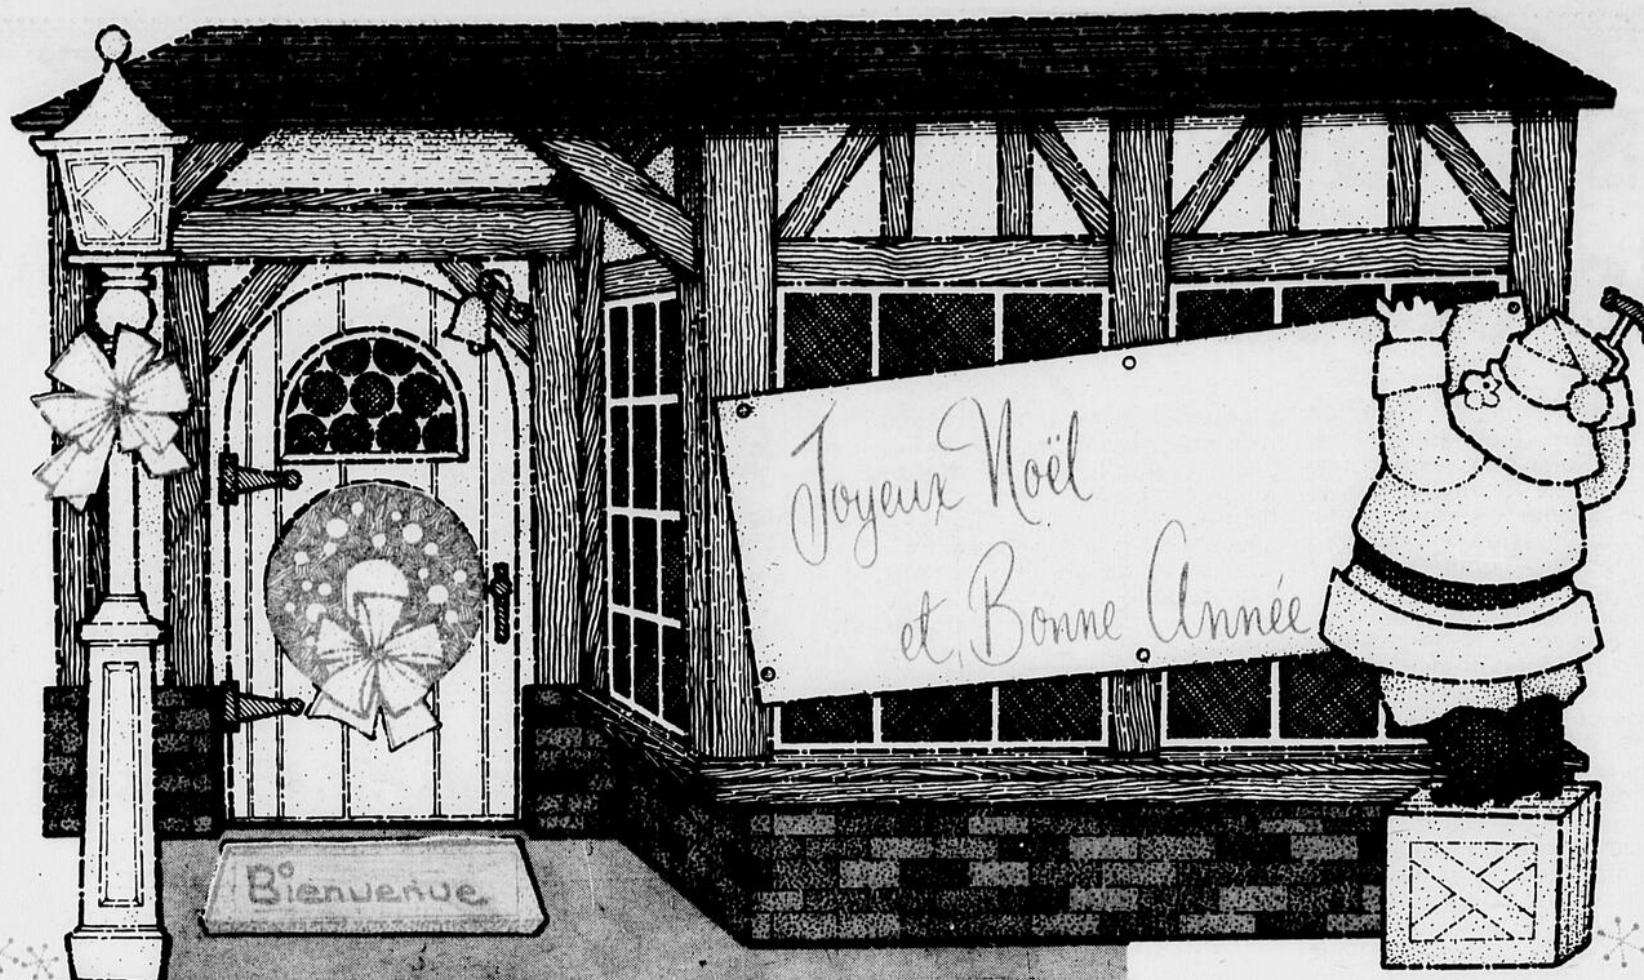 Joyeux Noël
et Bonne Année
Bienvenue